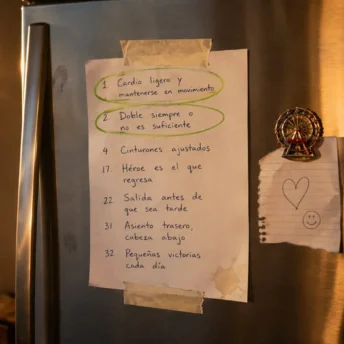 1. Cardio ligero y
mantenerse en movimiento
2. Doble siempre o
no es suficiente
4 Cinturones ajustados
17. Héroe es el que
regresa
22 Salida antes de
que sea tarde
31 Asiento trasero,
cabeza abajo
32 Pequeñas victorias
cada día